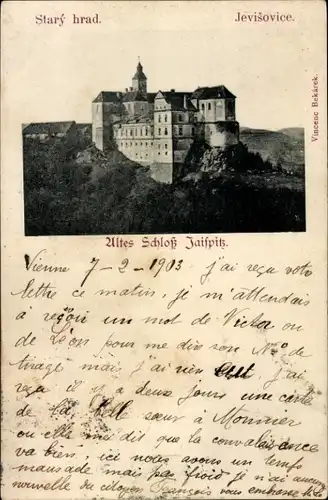 Starý hrad. Jevišovice.
Vincenc Bekárek.
Altes Schloß Jaispitz.
Vienne 7-2-1903 j'ai reçu votre
lettre ce matin, je m'attendais
à reçoir un mot de Victor ou
de Léon pour me dir son No de
tirage mais j'ai rien eut, j'ai
reçu il y a deux jours une carte
de la bell sœur à
ou elle me dit que la convalaissance
va bien, ici nous avons un temps
mausade mais pas froid je n'ai aucune
nouvelle du citoyen François vous embrasse